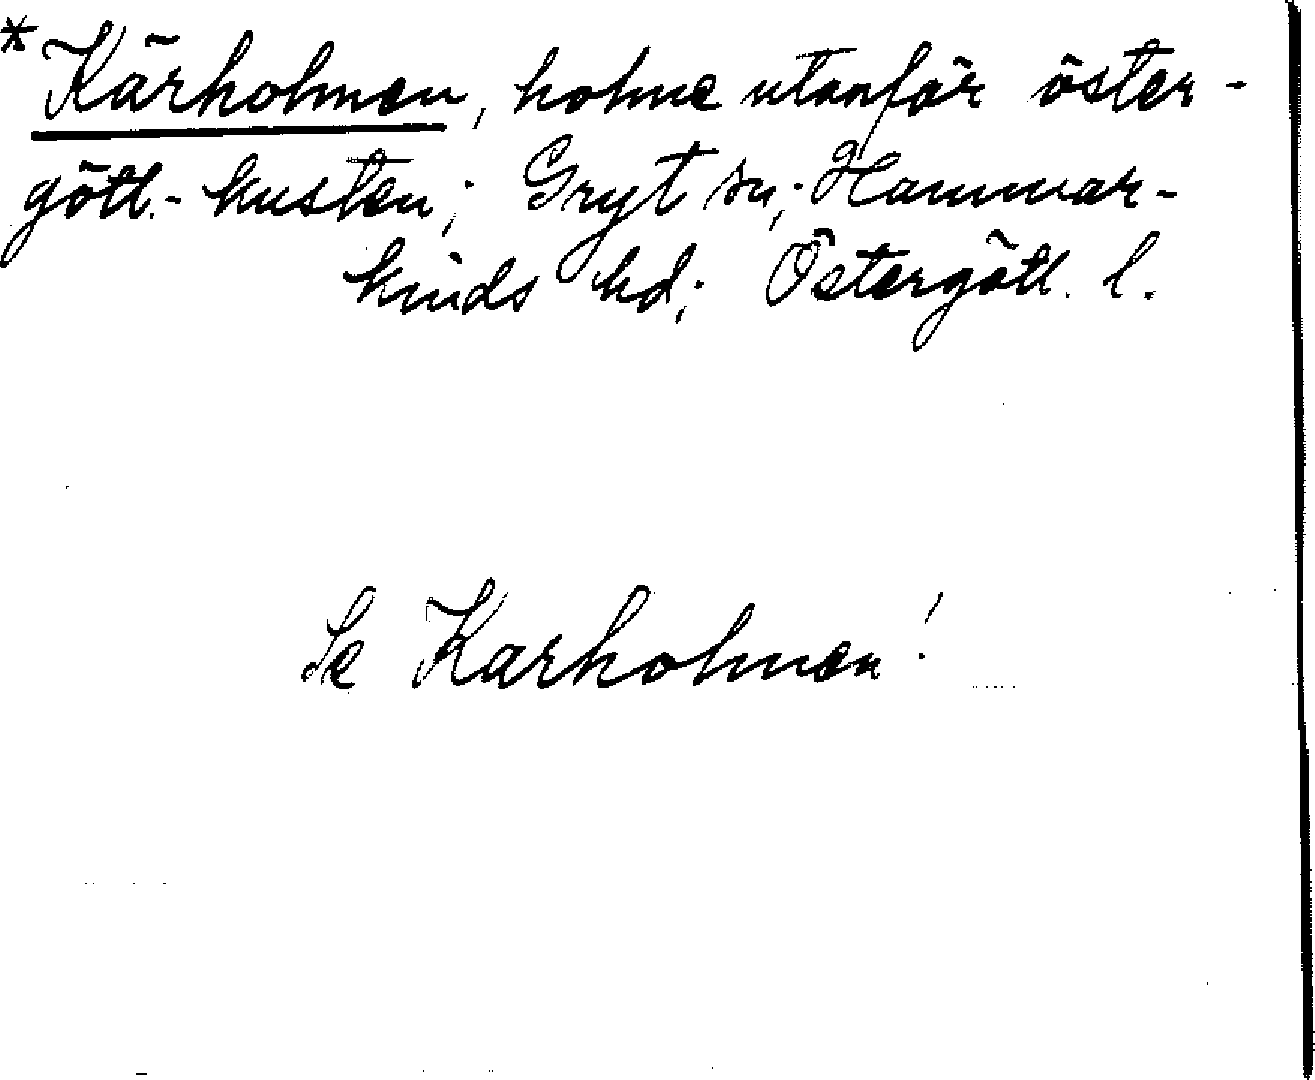 * Kärholmen, holme utanför öster-
gött.-kusten; Gryt sn; Hammar-
kinds hd; Östergötl. l.
Se Karholmen!